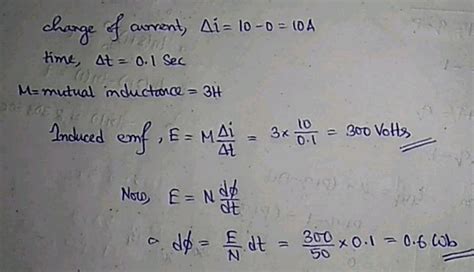 change of current, Δi = 10 - 0 = 10A
time, Δt = 0.1 Sec
M = mutual inductance = 3H
Induced emf, E = M Δi/Δt = 3 × 10/0.1 = 300 Volts
Now, E = N dϕ/dt
∴ dϕ = E/N dt = 300/50 × 0.1 = 0.6 Wb